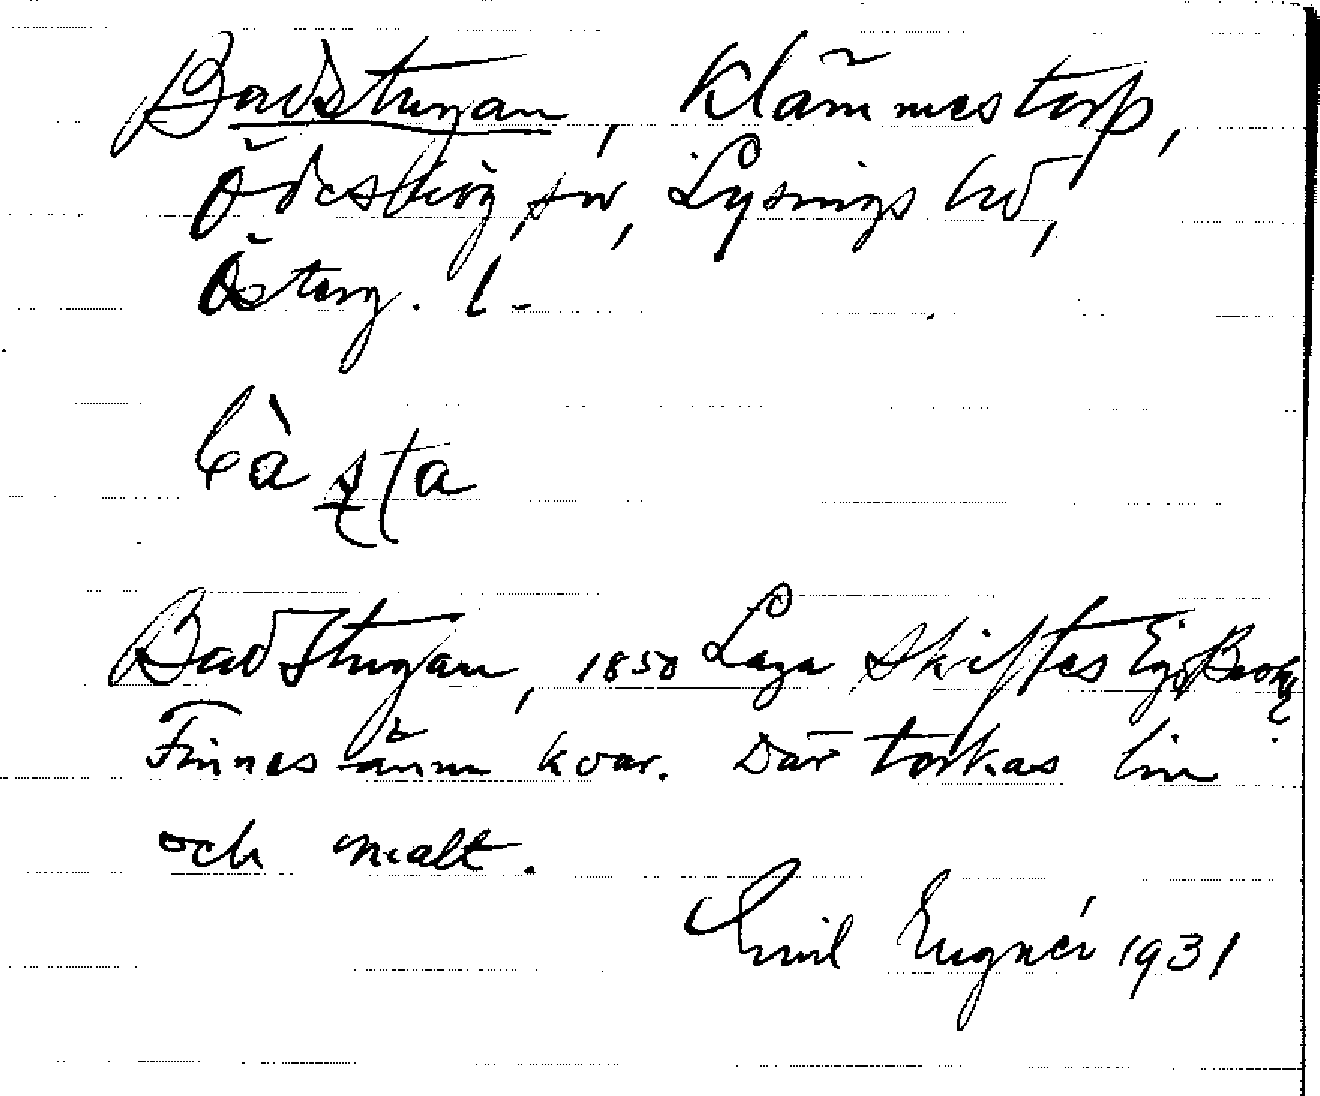 Badstugan, Klämmestorp,
Ödeshög sn, Lysings hd,
Österg. l.
bàsta
Badstugan, 1850 Laga Skiftes
Finnes ännu kvar. Där torkas lin
och malt.
Emil Eugnér 1931